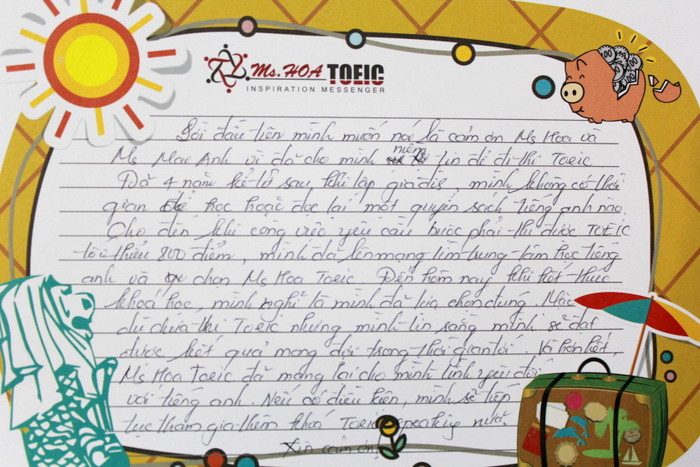 Ms. HOA TOEIC
INSPIRATION MESSENGER
Lời đầu tiên mình muốn nói là cảm ơn Ms Hoa và
Ms Mai Anh vì đã cho mình niềm tin để đi thi Toeic.
Đã 4 năm kể từ sau khi lập gia đình, mình không có thời
gian để học hoặc đọc lại một quyển sách tiếng anh nào.
Cho đến khi công việc yêu cầu buộc phải thi được TOEIC
tối thiểu 800 điểm, mình đã lên mạng tìm trung tâm học tiếng
anh và chọn Ms Hoa Toeic. Đến hôm nay khi kết thúc
khoá học, mình nghĩ là mình đã lựa chọn đúng. Mặc
dù chưa thi Toeic nhưng mình tin rằng mình sẽ đạt
được kết quả mong đợi trong thời gian tới. Và hơn hết,
Ms Hoa Toeic đã mang lại cho mình tình yêu đối
với tiếng anh. Nếu có điều kiện, mình sẽ tiếp
tục tham gia thêm khoá Toeic speaking nữa.
Xin cảm ơn!